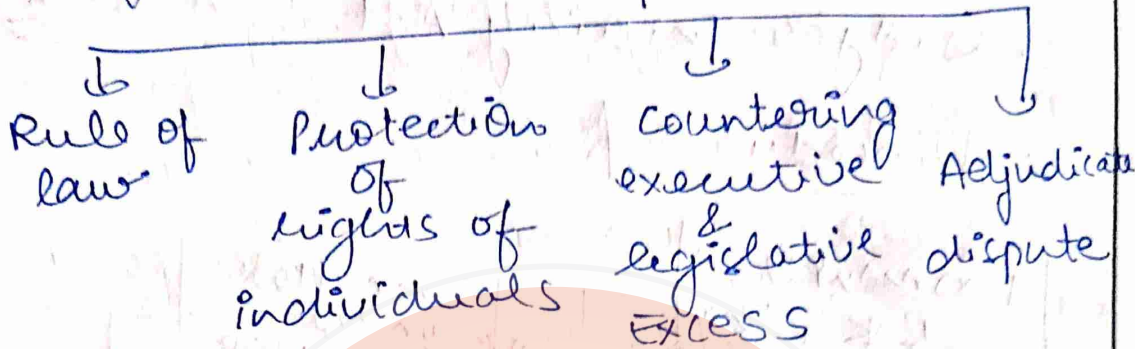 Rule of
law
Protection
of
rights of
individuals
Countering
executive
&
legislative
Excess
Adjudicate
dispute